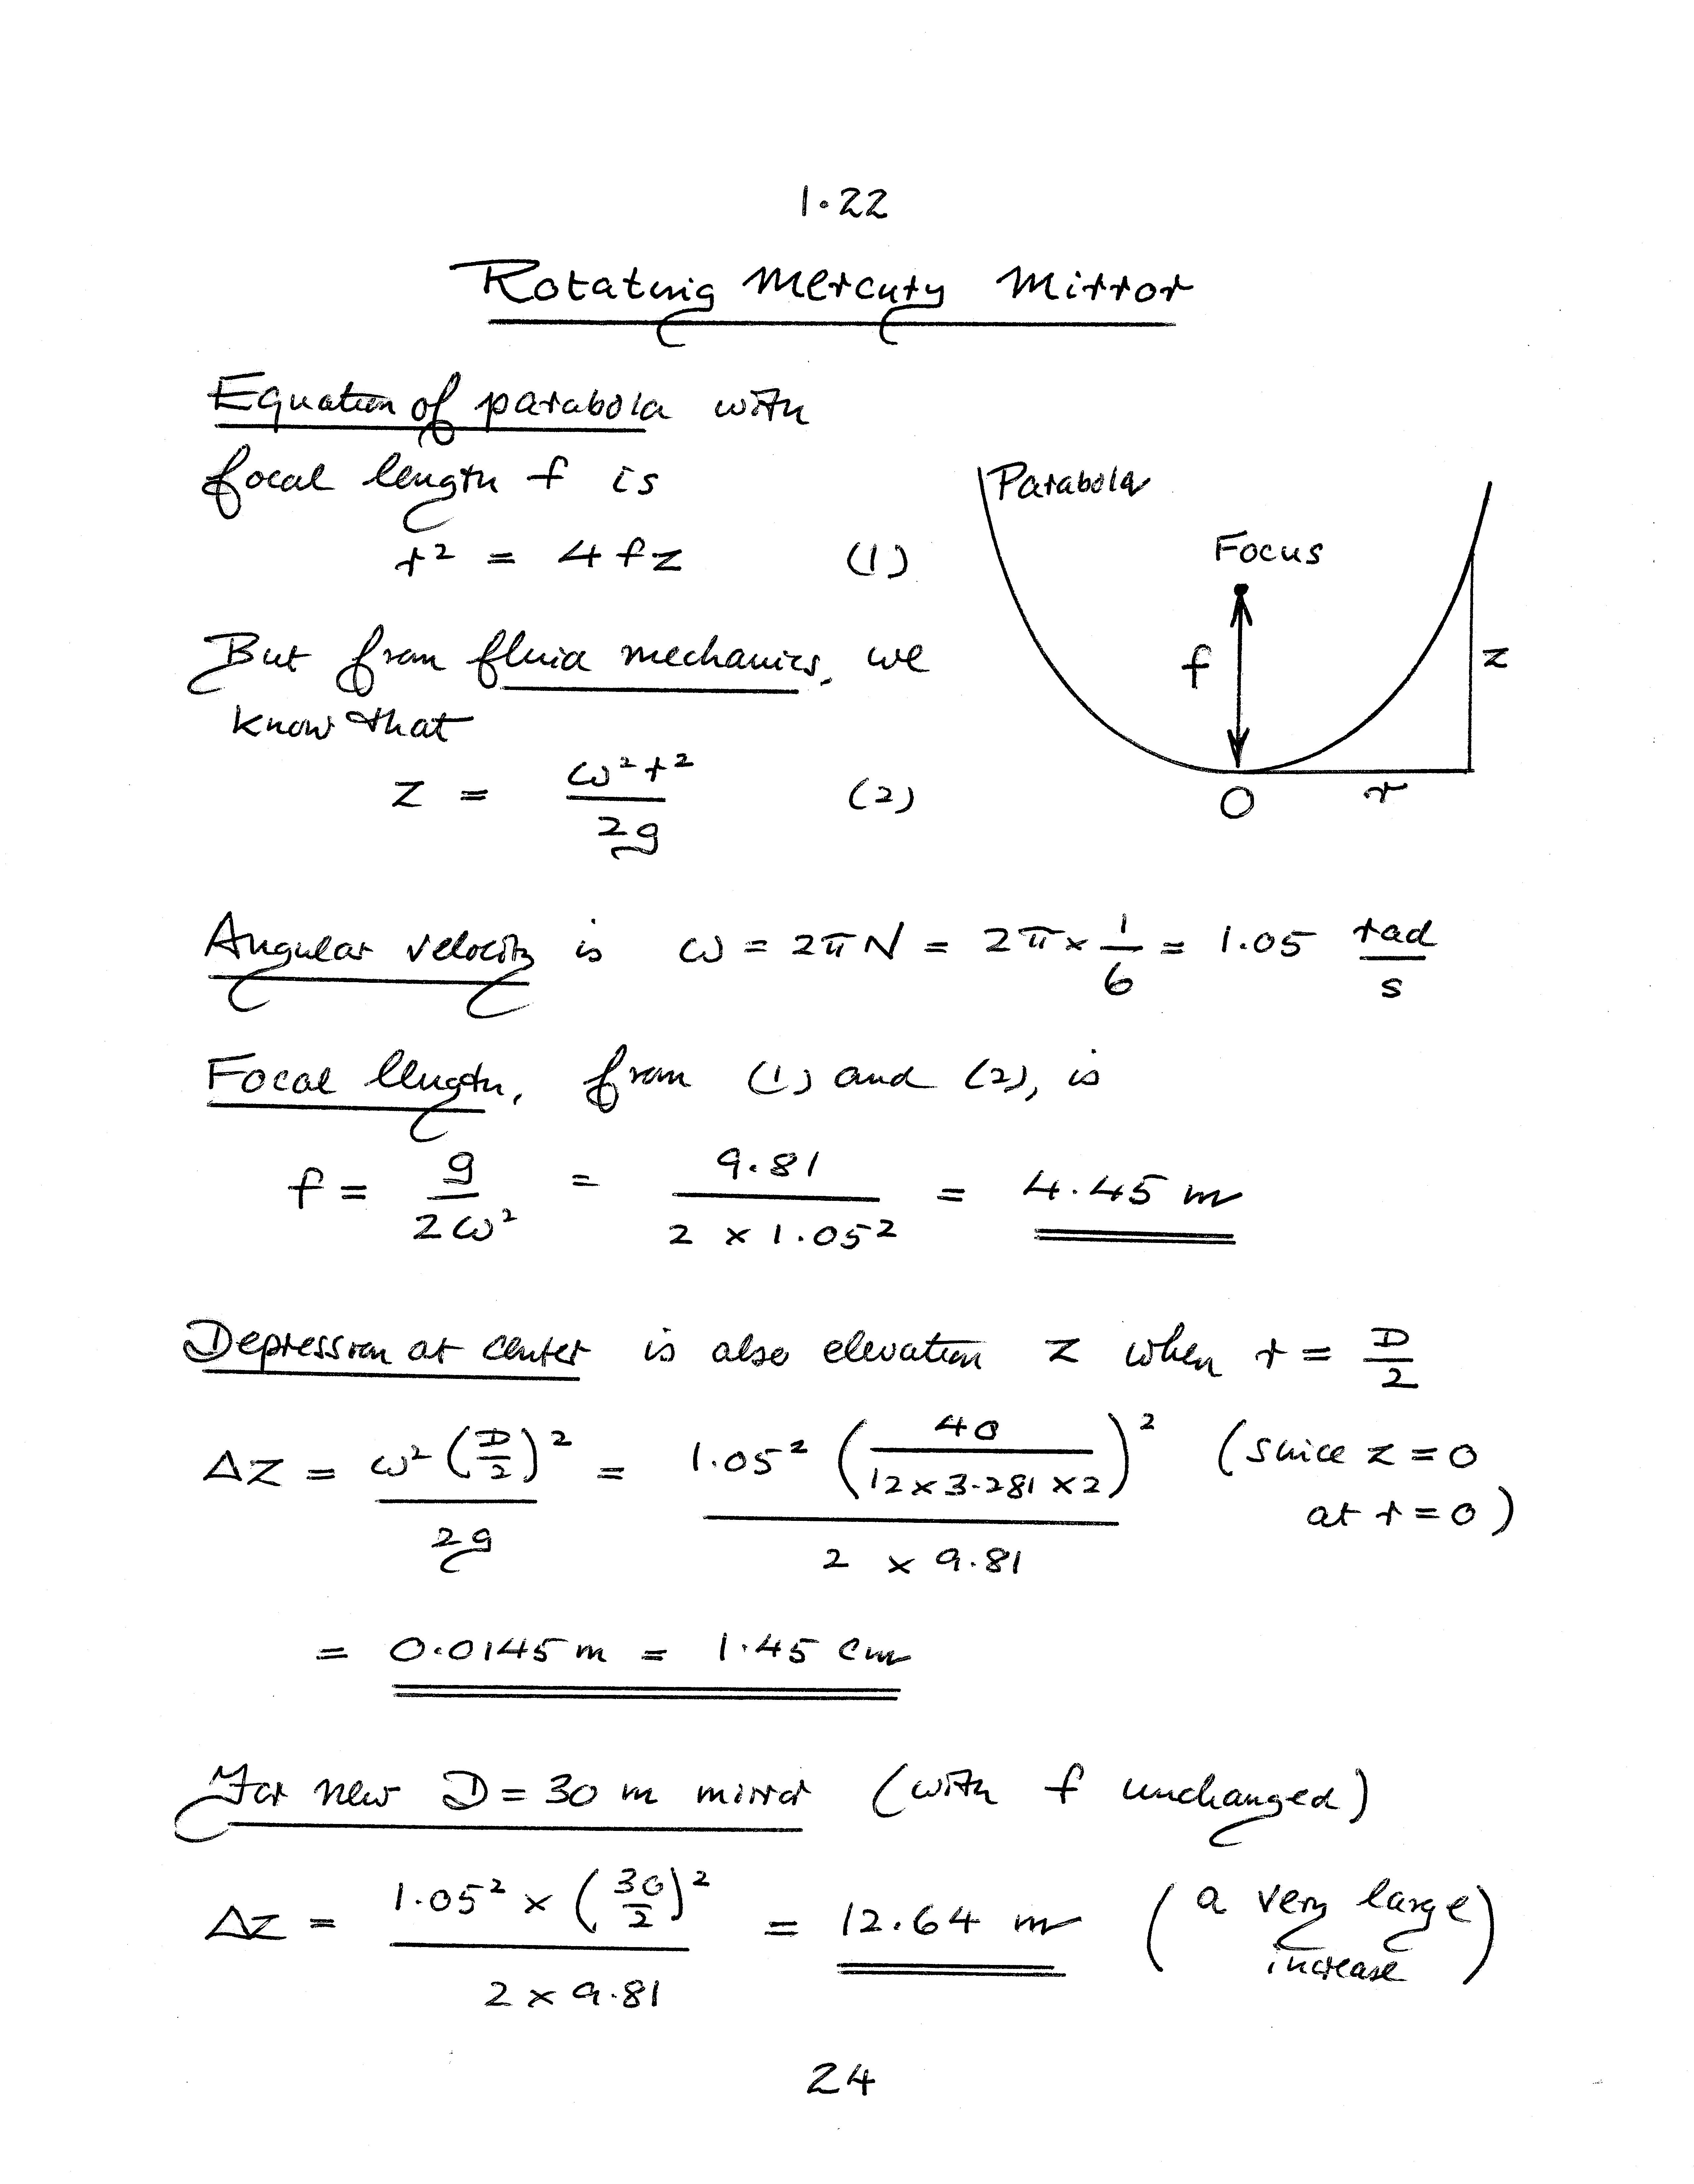 1.22
Rotating Mercury Mirror
Equation of parabola with
focal length f is
r² = 4fz (1)
But from fluid mechanics, we
know that
z = ω²r² / 2g (2)
Parabola
Focus
f
z
O
r
Angular velocity is ω = 2πN = 2π × 1/6 = 1.05 rad/s
Focal length, from (1) and (2), is
f = g / 2ω² = 9.81 / 2 × 1.05² = 4.45 m
Depression at center is also elevation z when r = D/2
Δz = ω² (D/2)² / 2g = 1.05² (40 / 12 × 3.281 × 2)² / 2 × 9.81 (since z = 0
at r = 0)
= 0.0145 m = 1.45 cm
For new D = 30 m mirror (with f unchanged)
Δz = 1.05² × (30/2)² / 2 × 9.81 = 12.64 m (a very large
increase)
24